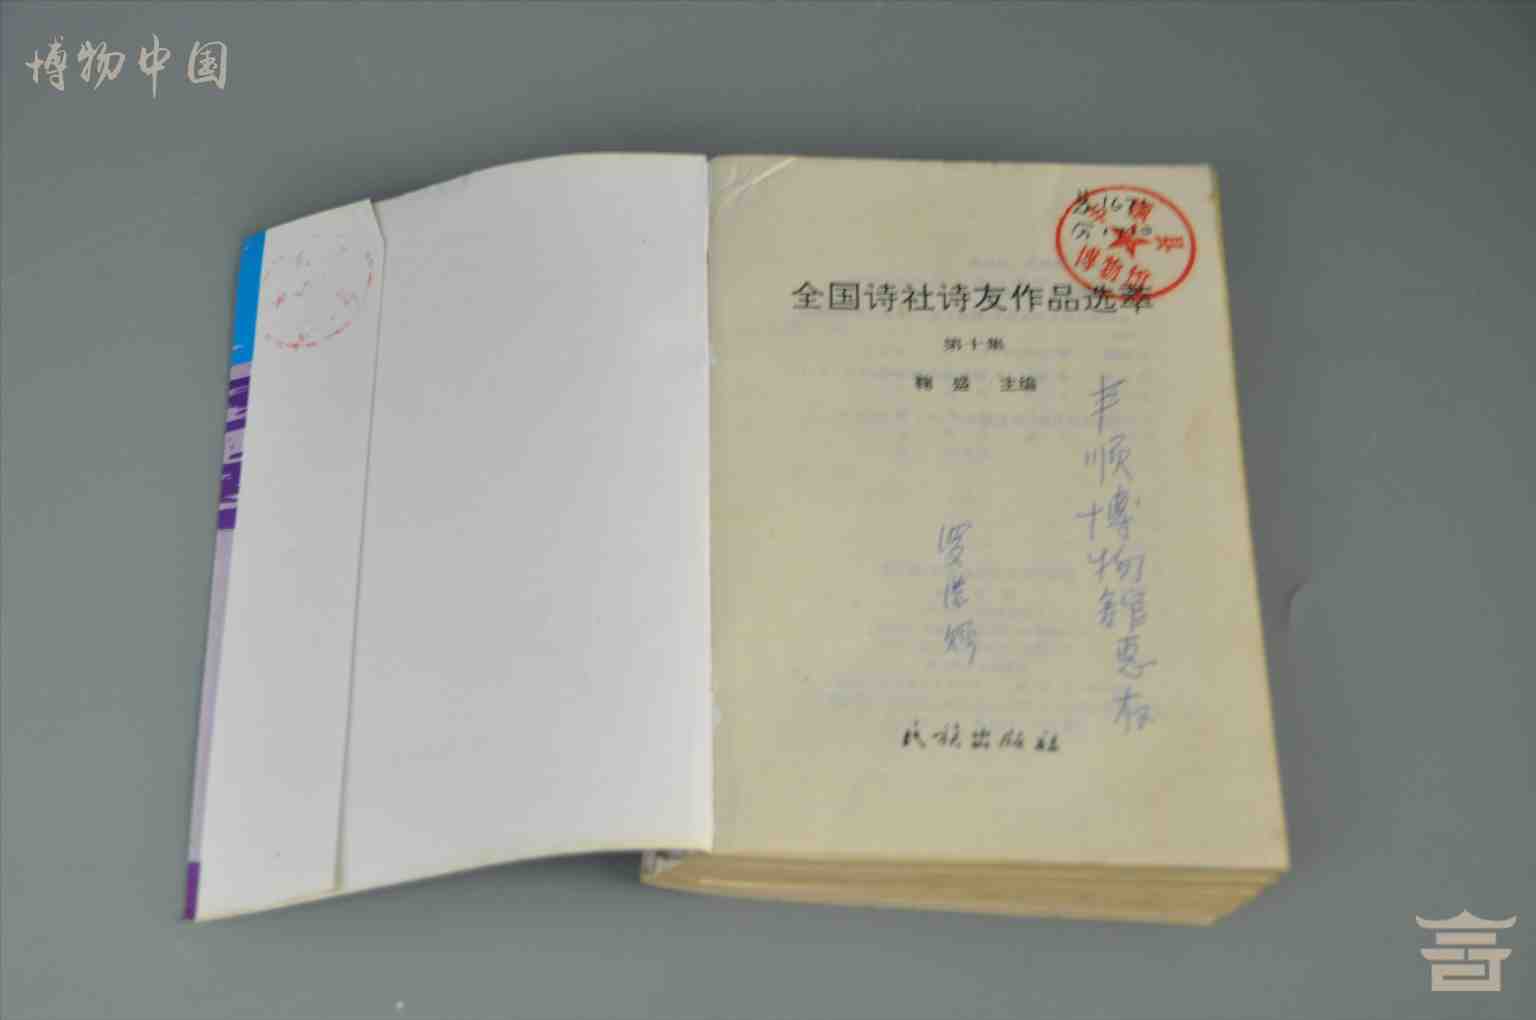 博物中国
全国诗社诗友作品选萃
第十集
鞠 盛 主编
丰顺博物馆惠存
民族出版社
博物馆